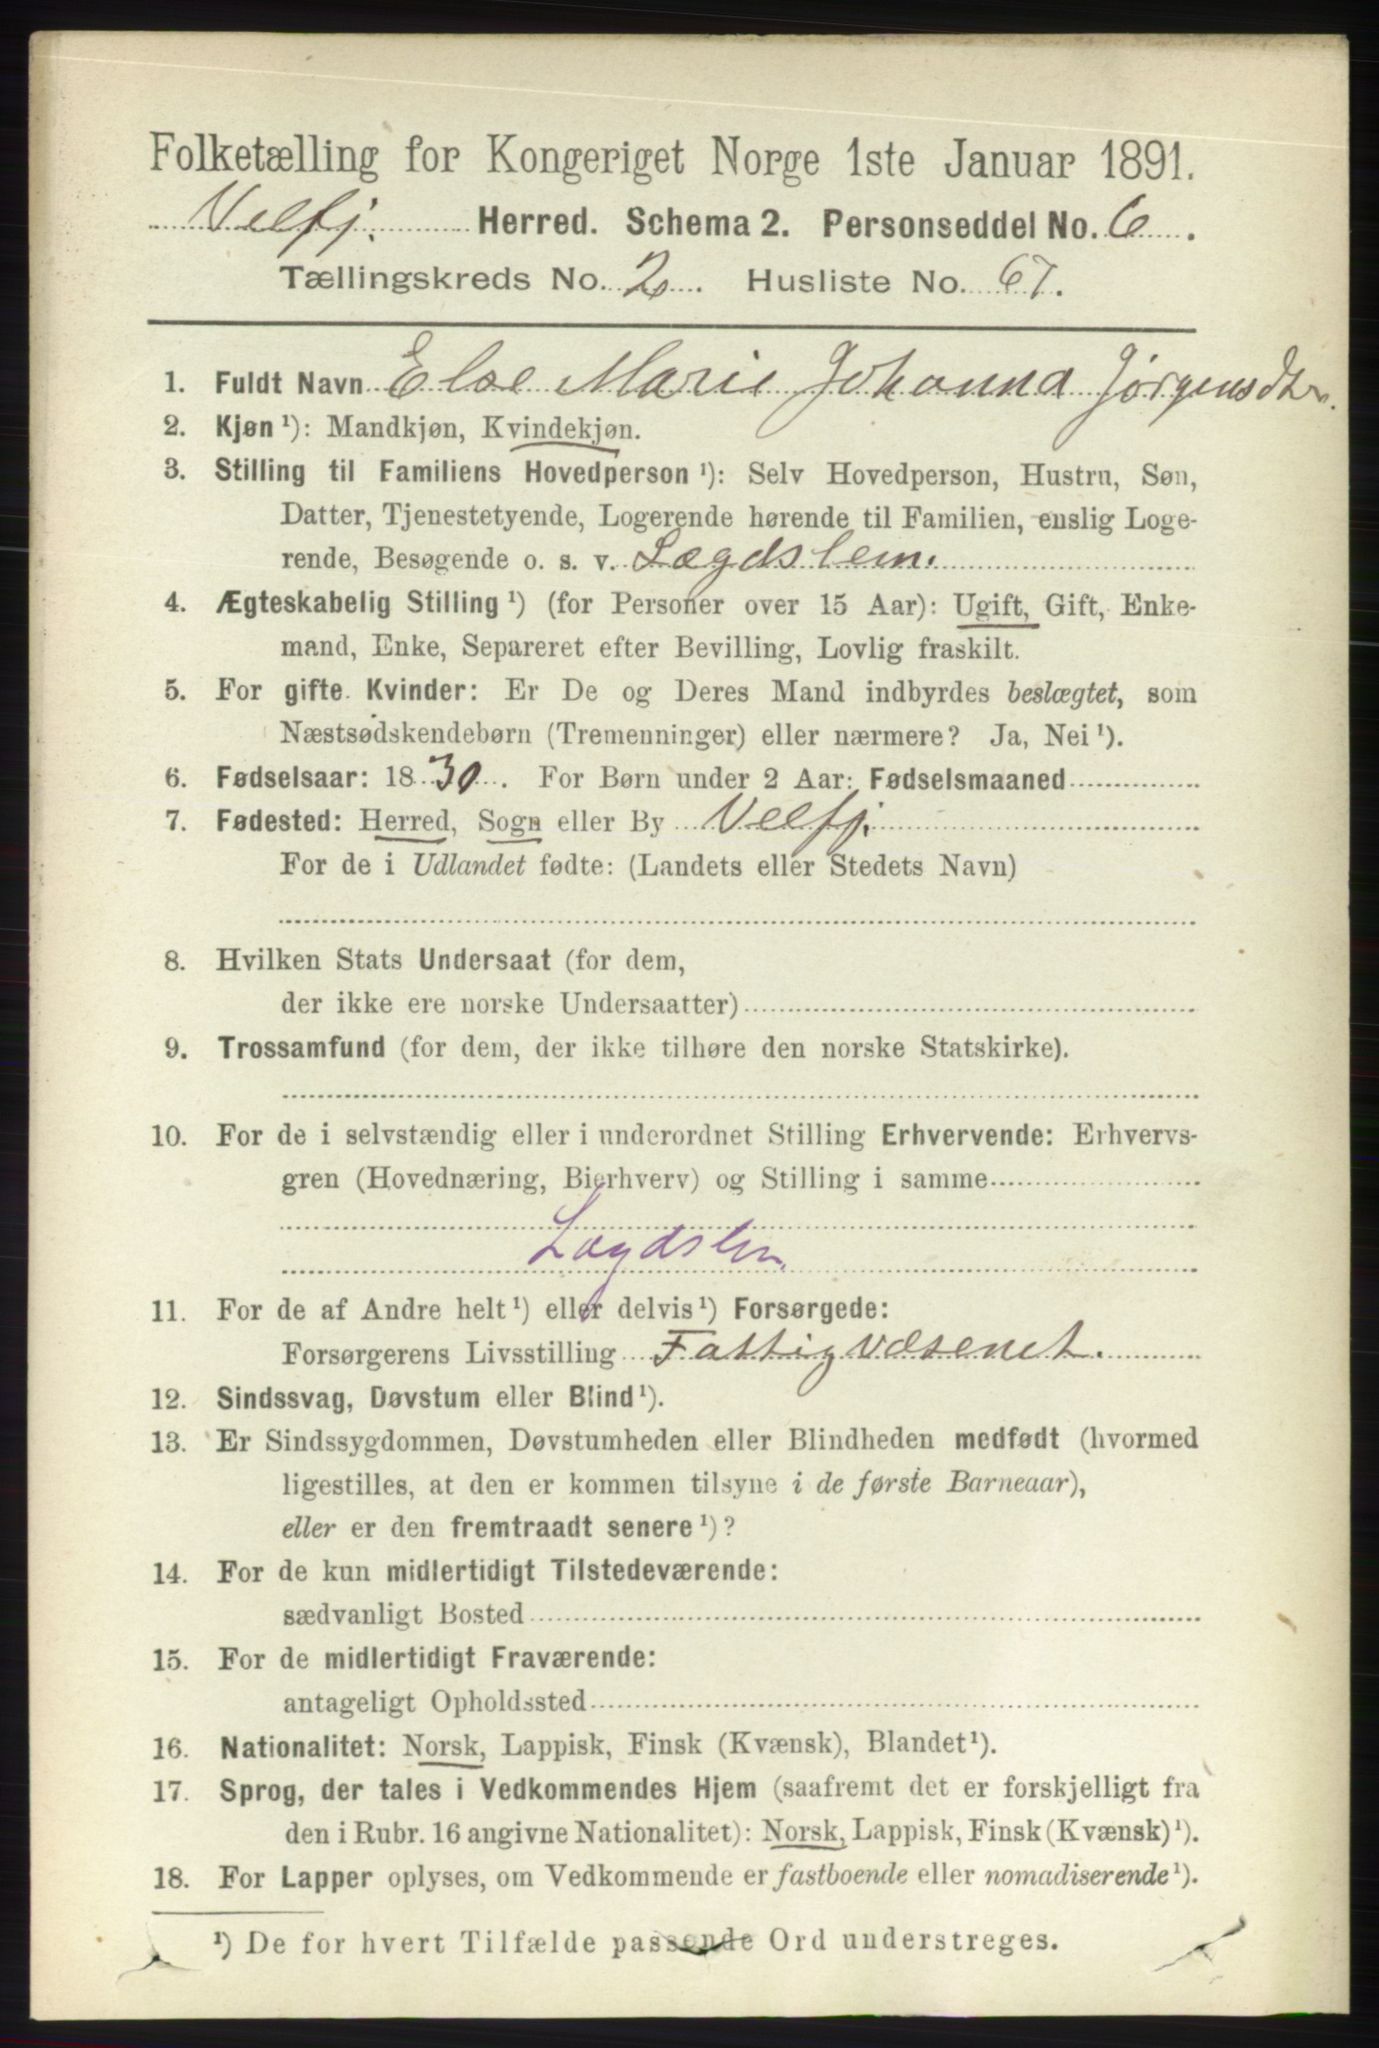 Folketælling for Kongeriget Norge 1ste Januar 1891.
Velfj. Herred. Schema 2. Personseddel No. 6.
Tællingskreds No. 2. Husliste No. 67.
1. Fuldt Navn Else Marie Johanna Jørgensdtr.
2. Kjøn ¹): Mandkjøn, Kvindekjøn.
3. Stilling til Familiens Hovedperson ¹): Selv Hovedperson, Hustru, Søn,
Datter, Tjenestetyende, Logerende hørende til Familien, enslig Loge-
rende, Besøgende o. s. v. Lægdslem.
4. Ægteskabelig Stilling ¹) (for Personer over 15 Aar): Ugift, Gift, Enke-
mand, Enke, Separeret efter Bevilling, Lovlig fraskilt.
5. For gifte Kvinder: Er De og Deres Mand indbyrdes beslægtet, som
Næstsødskendebørn (Tremenninger) eller nærmere? Ja, Nei ¹).
6. Fødselsaar: 1830. For Børn under 2 Aar: Fødselsmaaned
7. Fødested: Herred, Sogn eller By Velfj.
For de i Udlandet fødte: (Landets eller Stedets Navn)
8. Hvilken Stats Undersaat (for dem,
der ikke ere norske Undersaatter)
9. Trossamfund (for dem, der ikke tilhøre den norske Statskirke).
10. For de i selvstændig eller i underordnet Stilling Erhvervende: Erhvervs-
gren (Hovednæring, Bierhverv) og Stilling i samme
Lægdslem
11. For de af Andre helt ¹) eller delvis ¹) Forsørgede:
Forsørgerens Livsstilling Fattigvæsenet.
12. Sindssvag, Døvstum eller Blind ¹).
13. Er Sindssygdommen, Døvstumheden eller Blindheden medfødt (hvormed
ligestilles, at den er kommen tilsyne i de første Barneaar),
eller er den fremtraadt senere ¹)?
14. For de kun midlertidigt Tilstedeværende:
sædvanligt Bosted
15. For de midlertidigt Fraværende:
antageligt Opholdssted
16. Nationalitet: Norsk, Lappisk, Finsk (Kvænsk), Blandet ¹).
17. Sprog, der tales i Vedkommendes Hjem (saafremt det er forskjelligt fra
den i Rubr. 16 angivne Nationalitet): Norsk, Lappisk, Finsk (Kvænsk) ¹).
18. For Lapper oplyses, om Vedkommende er fastboende eller nomadiserende ¹).
¹) De for hvert Tilfælde passende Ord understreges.